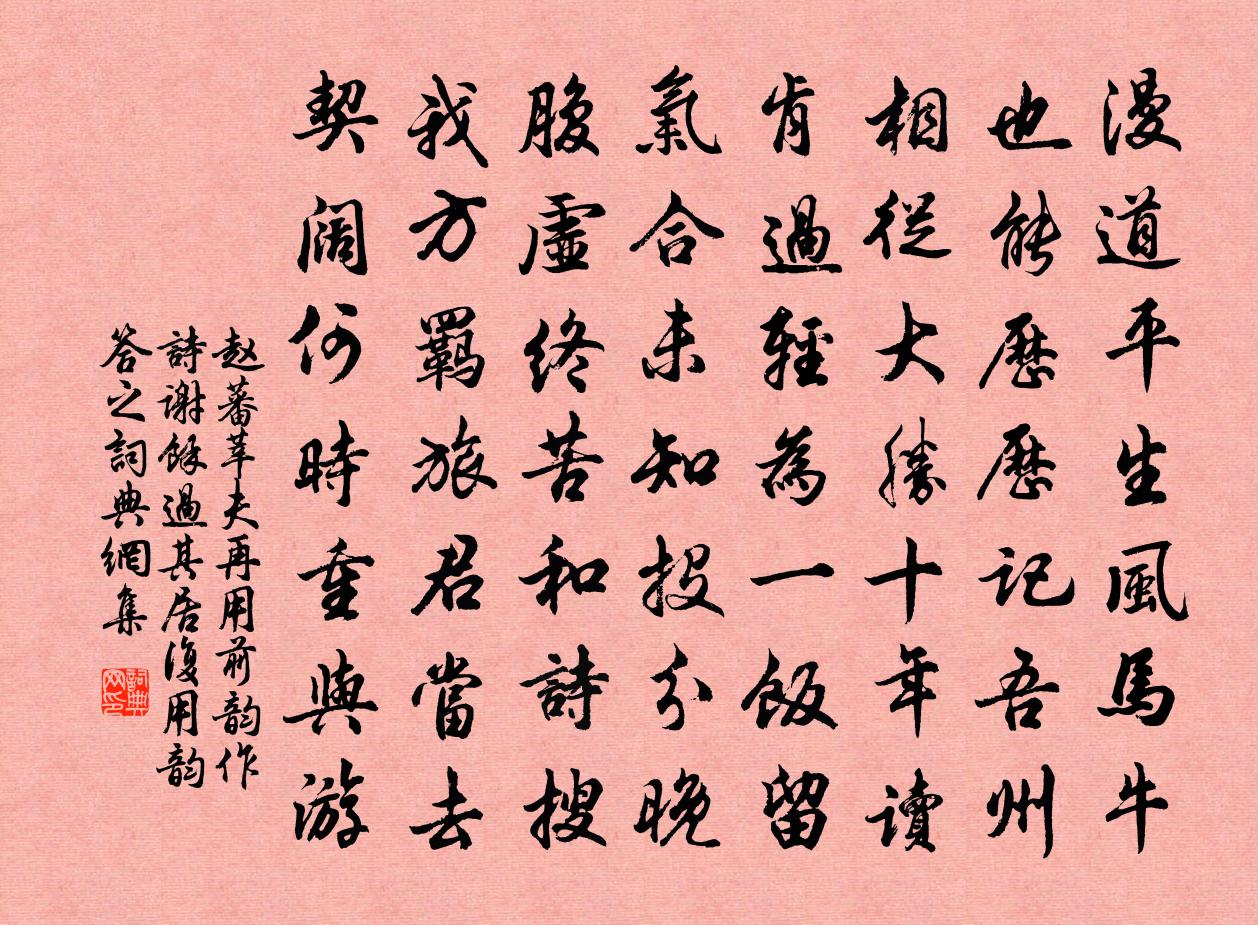 漫道平生風馬牛
也能歷歷記吾州
相從大勝十年讀
肯過輕為一飯留
氣合未知投分晚
腹虛終苦和詩搜
我方羈旅君當去
契闊何時重與游
赵蕃莘夫再用前韵作
詩谢餘過其居復用韵
答之詞典網集
詞典网印